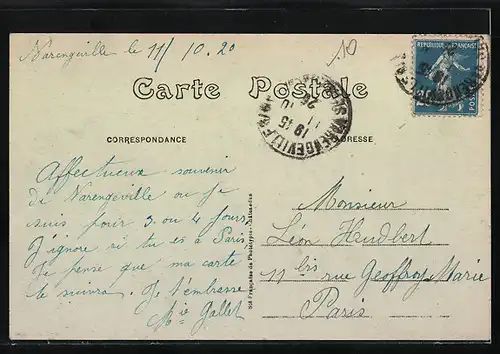 Varengeville le 11/10.20
10
REPUBLIQUE FRANÇAISE
Carte Postale
CORRESPONDANCE
ADRESSE
VARENGEVILLE
19 45
11
10
20
Affectueux souvenir
de Varengeville où je
suis pour 3 ou 4 jours
J'ignore si tu es à Paris
Je pense que ma carte
te suivra. Je t'embrasse
Mie Gallet
Monsieur
Léon Heudbert
11 bis rue Geoffroy Marie
Paris